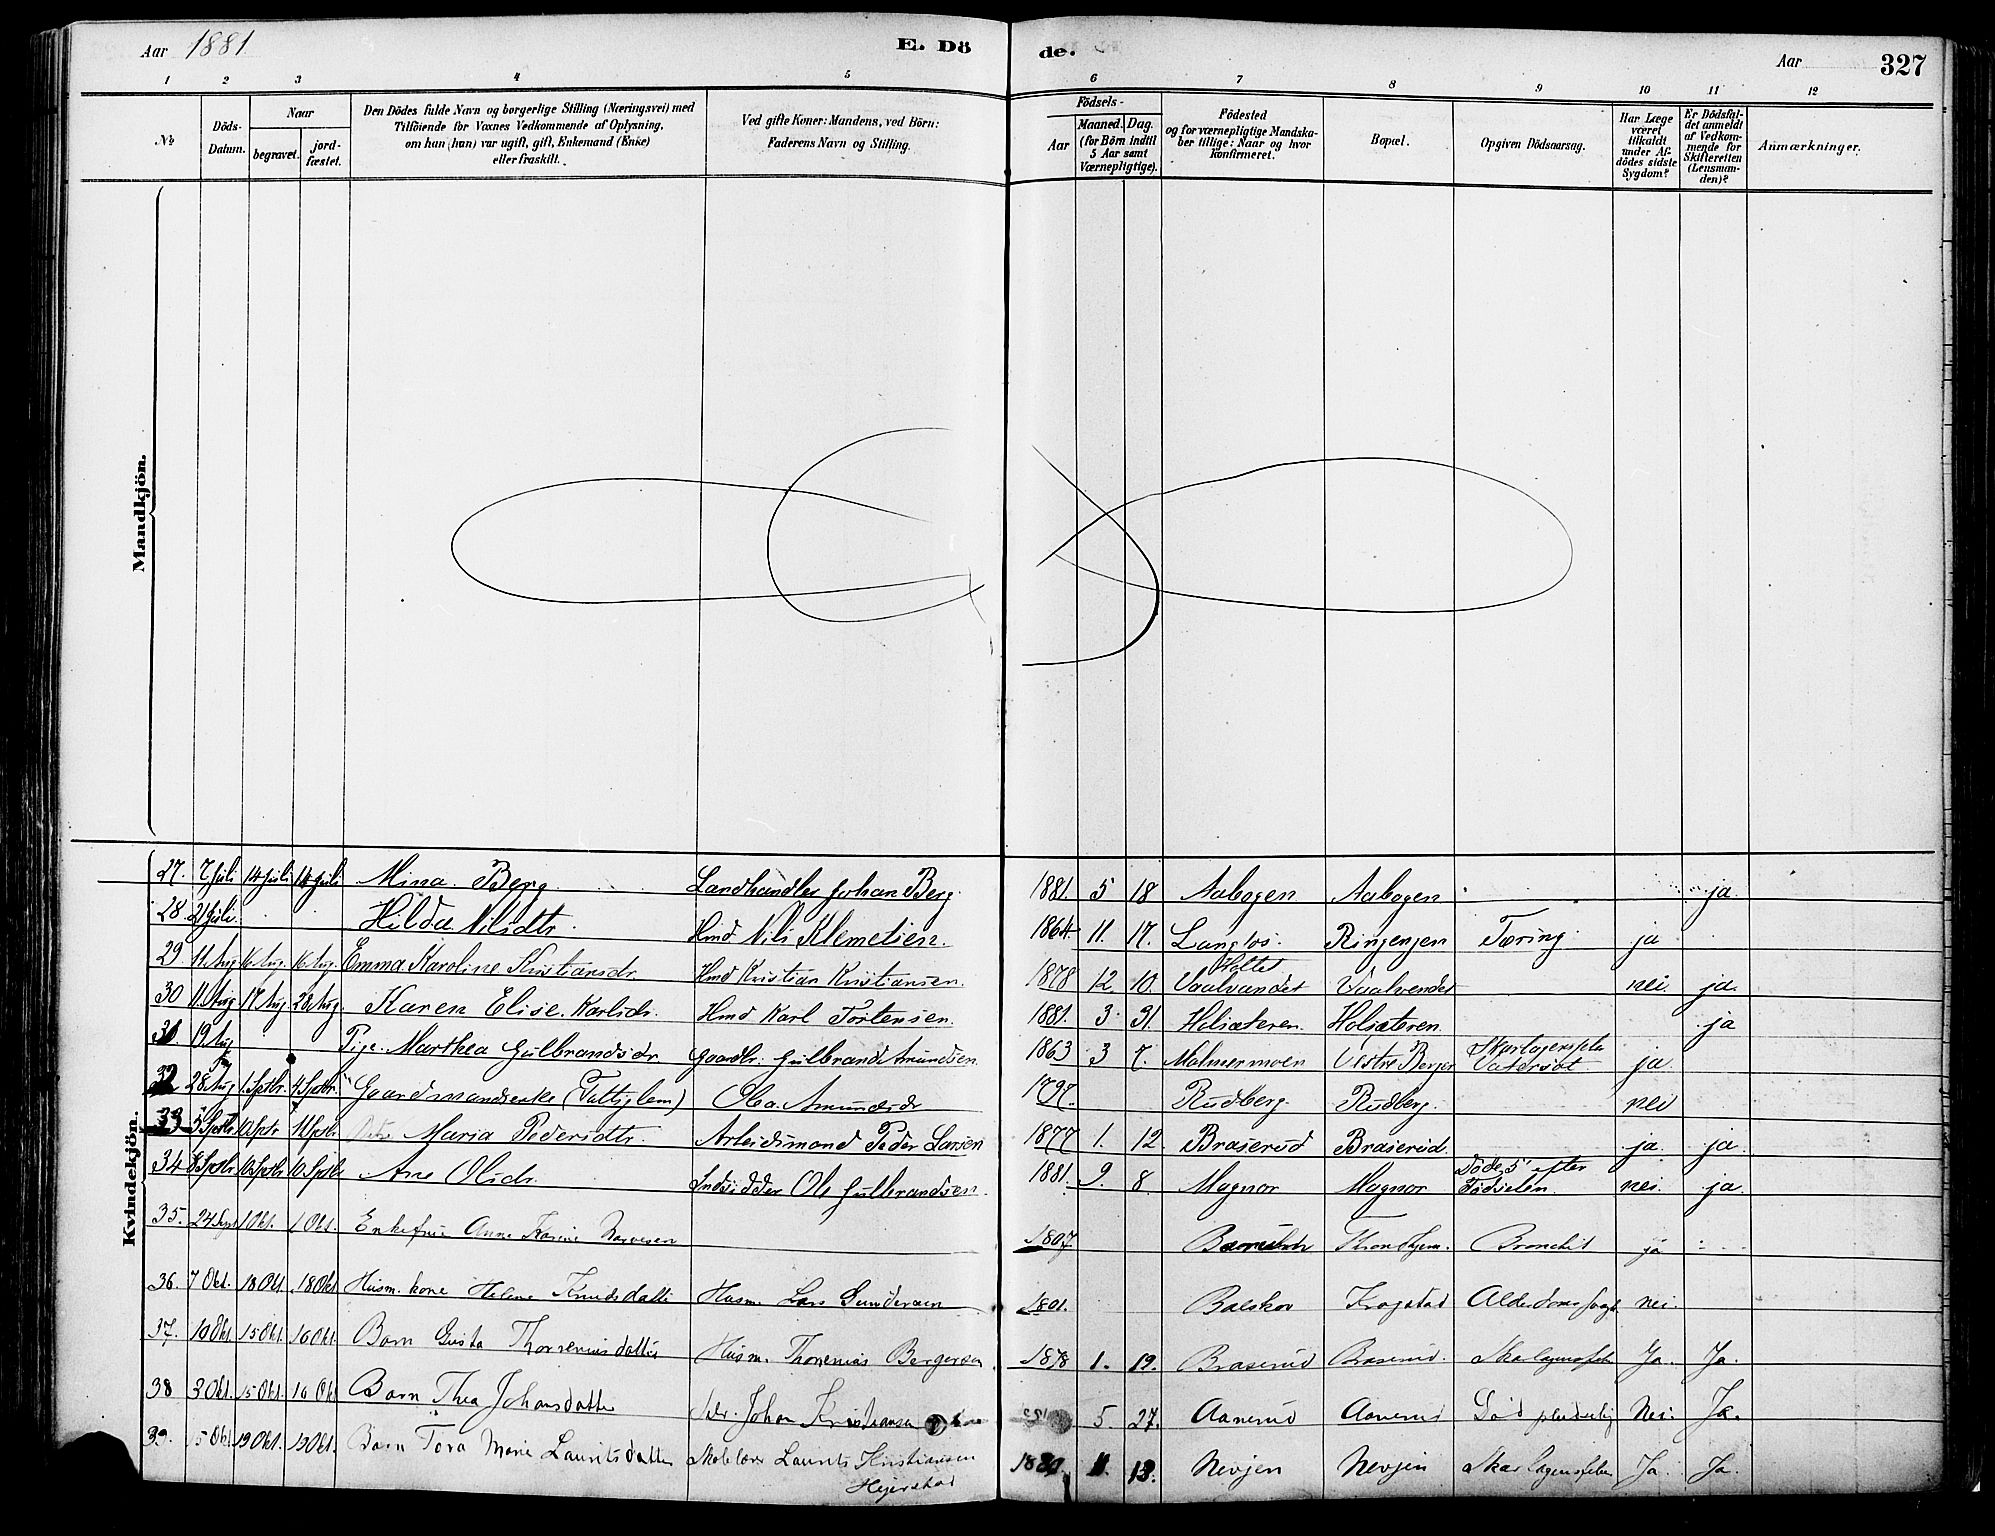 Aar 1881
E. Dö
de.
Aar
327
1 2 3 4 5 6 7 8 9 10 11 12
No
Döds-Datum.
Naar
begravet.
jord-fæstet.
Den Dödes fulde Navn og borgerlige Stilling (Næringsvei) med
Tilföiende for Voxnes Vedkommende af Oplysning,
om han (hun) var ugift, gift, Enkemand (Enke)
eller fraskilt.
Ved gifte Koner: Mandens, ved Börn:
Faderens Navn og Stilling.
Födsels-
Aar
Maaned. Dag.
(for Børn indtil
5 Aar samt
Værnepligtige).
Födested
og for værnepligtige Mandska-
ber tillige: Naar og hvor
konfirmeret.
Bopæl.
Opgiven Dödsaarsag.
Har Læge
været
tilkaldt
under Af-
dödes sidste
Sygdom?
Er Dödsfal-
det anmeldt
af Vedkom-
mende for
Skifteretten
(Lensman-
den)?
Anmærkninger.
Mandkjön.
Kvindekjön.
27. 7 Juli 14 Juli 14 Juli Mina Berg Landhandler Johan Berg. 1881. 5 18 Aabogen Aabogen ja
28 21 Juli. Hilda Nilsdtr. Hmd Nils Klemetsen. 1864 11. 17. Langlos. Ringenjen Tæring. ja
29 11 Aug 16 Aug. 16 Aug. Emma Karoline Kristiansdr Hmd Kristian Kristiansen. 1878 12. 10. Holtet Vaalvandet Vaalvendet nei ja.
30 11. Aug 17 Aug 28 Aug. Karen Elise Karlsdr. Hmd Karl Tostensen. 1881. 3. 31. Holsæteren. Holsæteren. ja
31 19 Aug Pige Marthea Gulbrandsdr Gaardbr. Gulbrand Amundsen 1863 3 7. Malmermoen Vestre Berger Skarlagensfeber Vatersot ja.
32 28 Aug 1. Septbr. 4 Septbr. Gaardmandsenke (Fattiglem) Olea Amundsdr 1797. Rudberg. Rudberg. nei
33 5 Septbr 10 Sptr 11 Septbr. Maria Pedersdtr. Arbeidsmand Peder Larsen 1877 1. 12. Braserud Braserud. ja. ja.
34 8 Septbr 10 Septbr 10 Septbr Ane Olsdr. Indsidder Ole Gulbrandsen. 1881. 9. 8. Magnor Magnor Döde 5' efter Födselen. nei. ja.
35. 24 Sept 1 Okt. 1 Okt. Enkefrue Anne Karine 1807 Bronchit ja
36. 7 Okt. 18 Okt. 18 Okt Husm. kone Helene Knudsdatter Husm. Lars Gundersen 1801. Balskov Krogstad Alderdomssvagh. nei.
37. 10 Okt. 15 Okt. 16 Okt. Barn Gusta Thorseniusdatter Husm. Thorenius Bergersen 1878 1. 19. Braserud Braserud. Skarlagensfeber Ja. Ja.
38 3 Okt. 15 Okt. 16 Okt Barn Thea Johansdatter Selv. Johan Kristiansen 5. 27. Aanerud Aanerud Död pludselig Nei. Ja.
39. 15 Okt 19 Okt. 19 Okt. Barn Tora Marie Lauritsdatter Skolelærer Laurits Kristiansen Hejerstad 11. 13. Nevjen Nevjen Skarlagensfeber Ja. Ja.